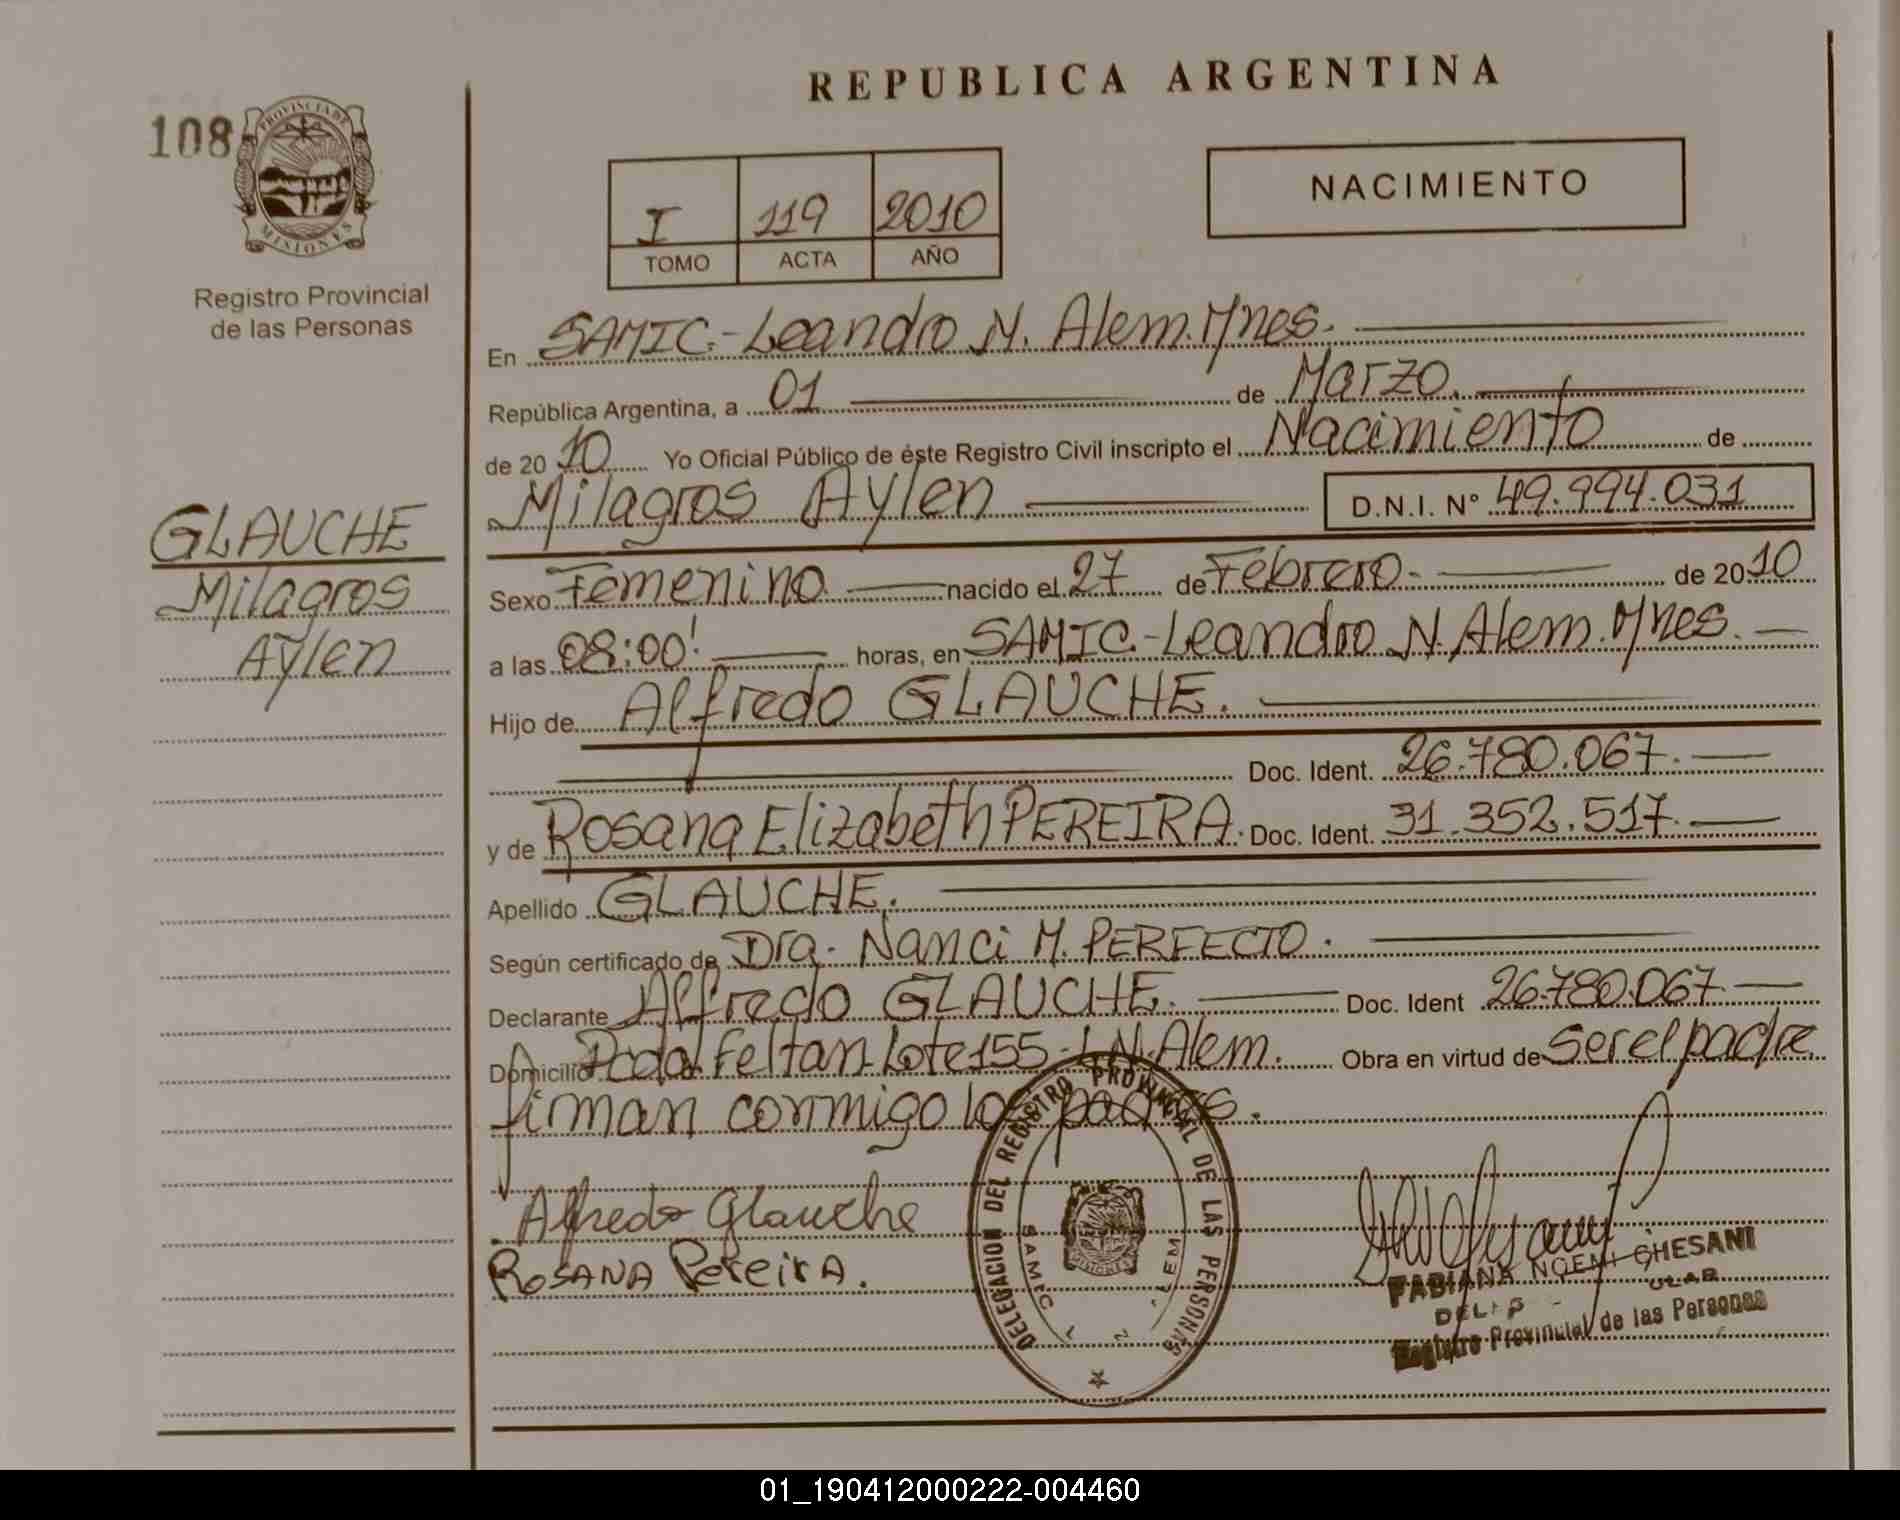 REPUBLICA ARGENTINA
108
PROVINCIA DE
MISIONES
Registro Provincial
de las Personas
NACIMIENTO
I 119 2010
TOMO ACTA AÑO
En SAMIC.-Leandro N. Alem. Mnes.
República Argentina, a 01 de Marzo.
de 2010 Yo Oficial Público de éste Registro Civil inscripto el Nacimiento de
Milagros Aylen D.N.I. Nº 49.994.031
GLAUCHE
Milagros
Aylen
Sexo Femenino nacido el 27 de Febrero. de 2010
a las 08:00' horas, en SAMIC.-Leandro N. Alem. Mnes.
Hijo de Alfredo GLAUCHE.
Doc. Ident. 26.780.067.
y de Rosana Elizabeth PEREIRA. Doc. Ident. 31.352.517.
Apellido GLAUCHE.
Según certificado de Dra. Nanci M. PERFECTO.
Declarante Alfredo GLAUCHE. Doc. Ident 26.780.067
Domicilio Lote 155-L.N. Alem. Obra en virtud de Ser el padre
firman conmigo los padres.
Alfredo Glauche
ROSANA PEREIRA.
DELEGACION DEL REGISTRO PROVINCIAL DE LAS PERSONAS
SAMIC
MISIONES
FABIANA NOEMI GHESANI
Registro Provincial de las Personas
01_190412000222-004460